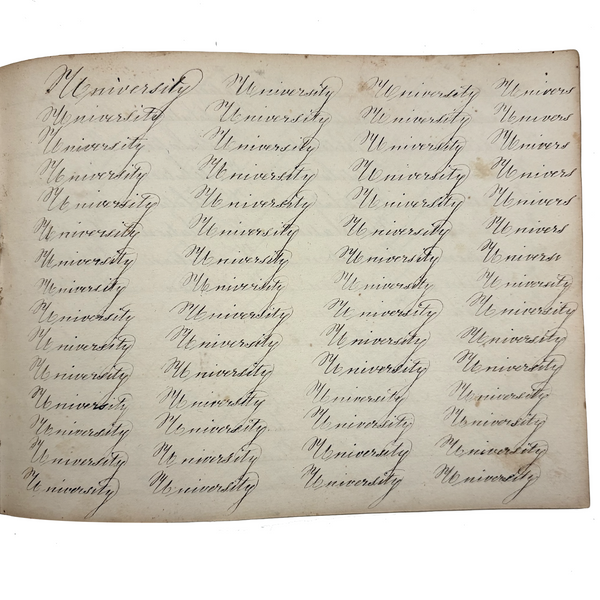 University University University Univers
University University University Univers
University University University Univers
University University University Univers
University University University Univers
University University University Univers
University University University Universe
University University University University
University University University University
University University University University
University University University University
University University University University
University University University University
University University University University
University University University University